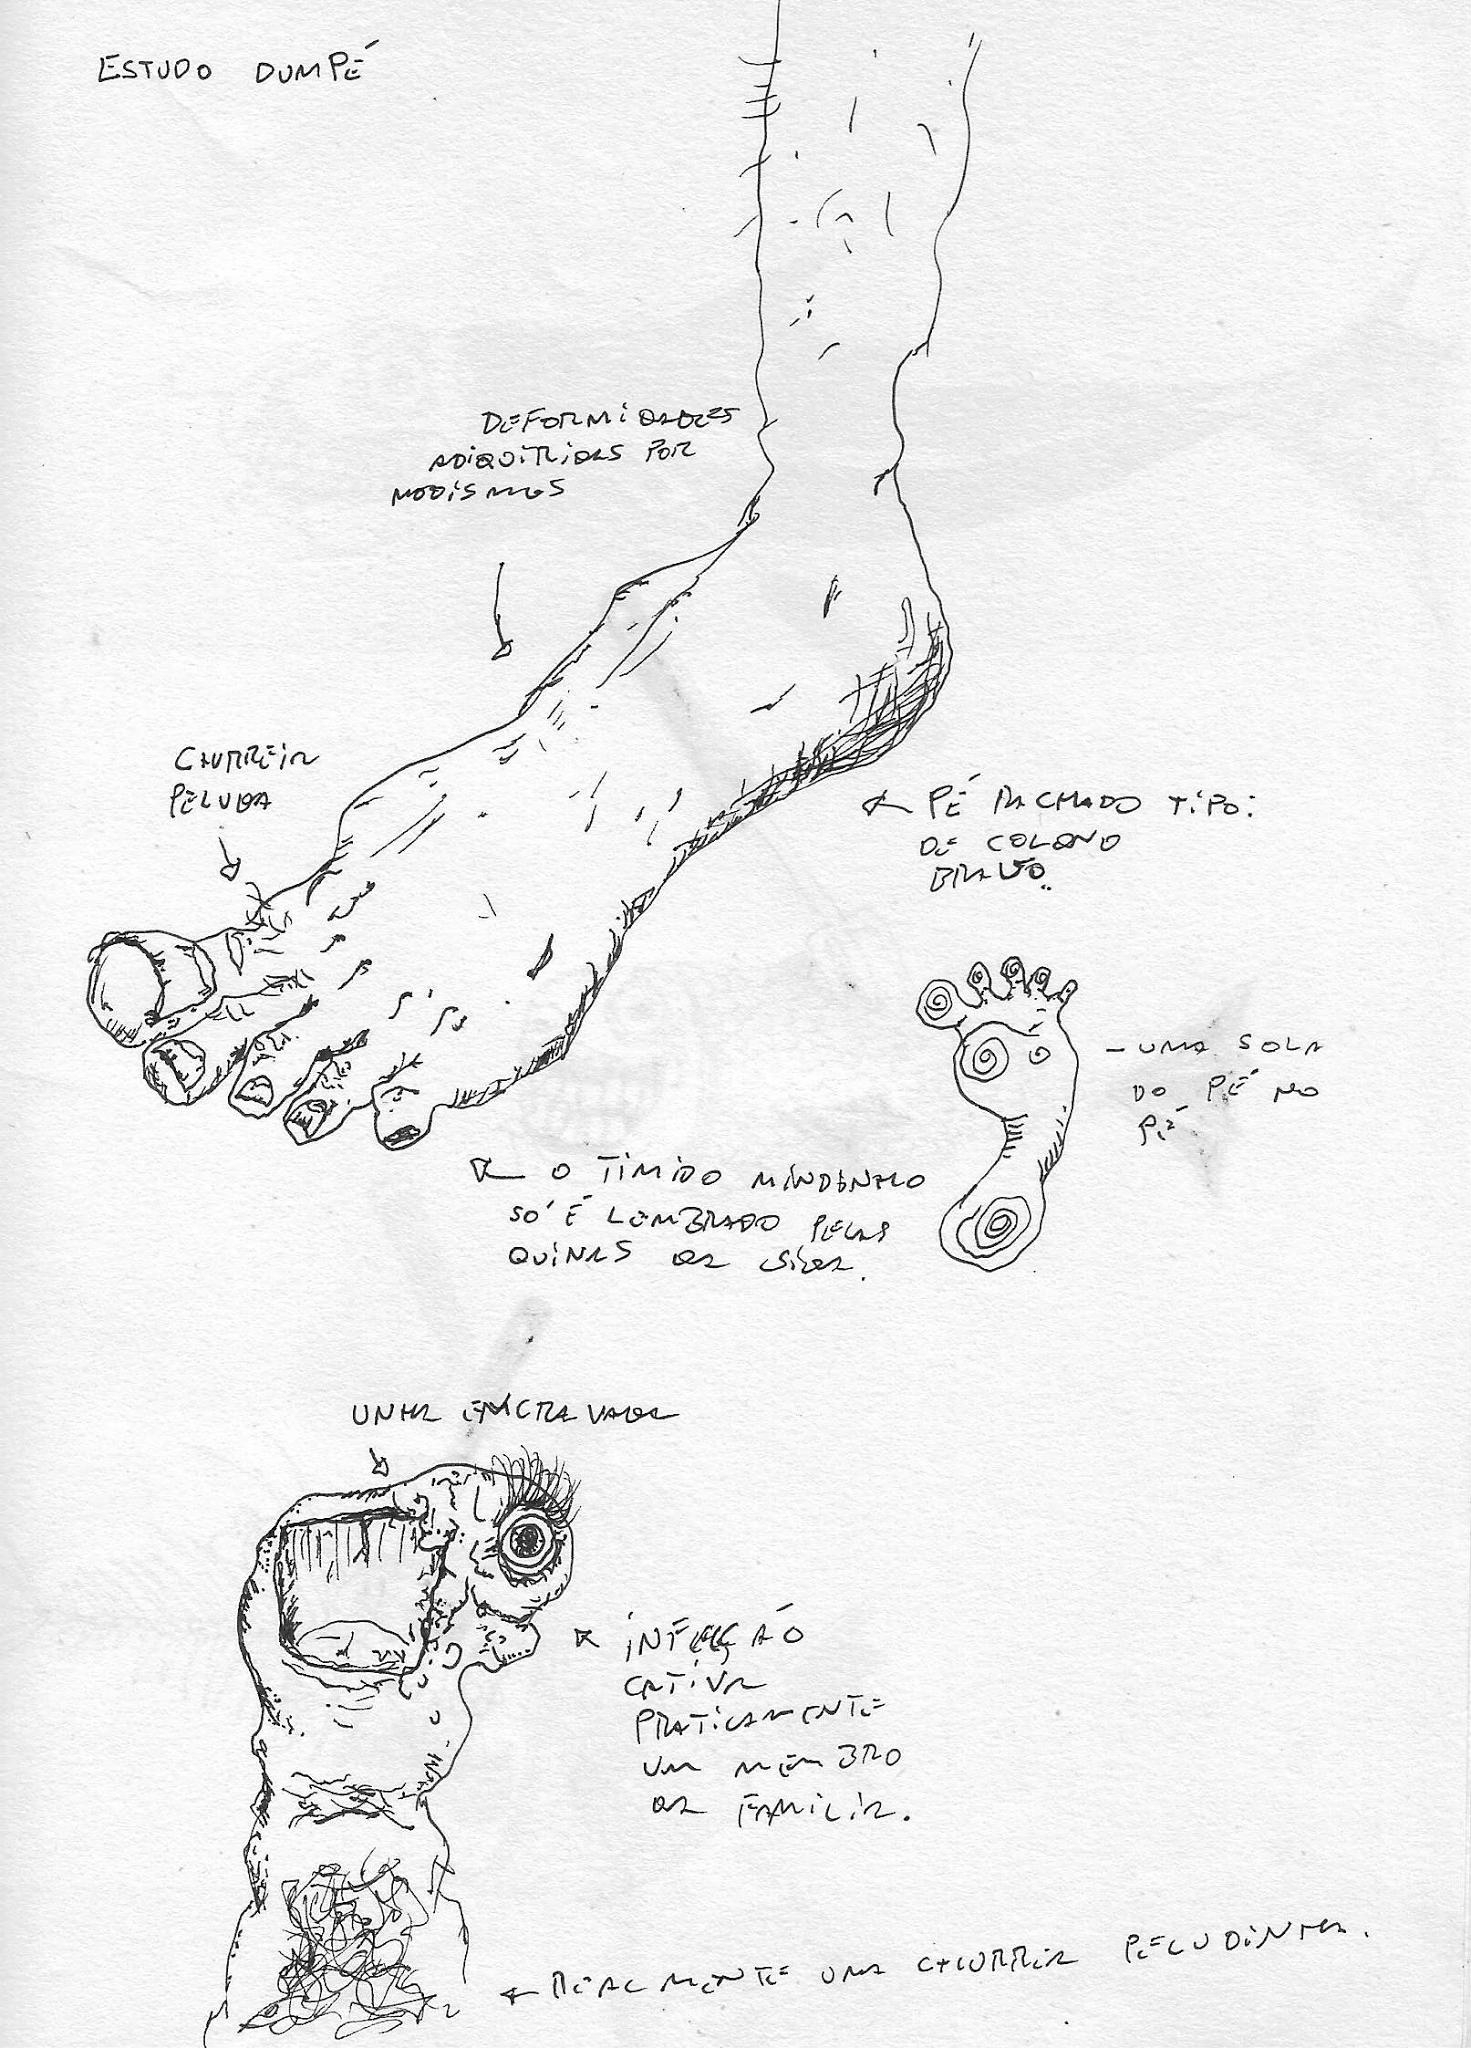 ESTUDO DUMPÉ
DEFORMIDADES
ADIQUIRIDAS POR
MODISMOS
CHURREIA
PELUDA
PÉ RACHADO TIPO:
DE COLONO
BRAVO..
- UMA SOLA
DO PÉ NO
PÉ
O TIMIDO MINDINHO
SO' É LEMBRADO PELAS
QUINAS DA VIDA.
UNHA ENCRAVADA
INFECÇÃO
CATIVA
PRATICAMENTE
UM MEMBRO
DA FAMILIA.
REALMENTE UMA CHURRIA PELUDINHA.